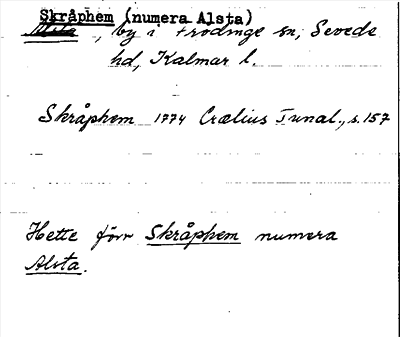 Skråphem (numera Alsta)
Alsta, by i Frödinge sn, Sevede
hd, Kalmar l.
Skråphem 1774 Crælius Tunal., s. 157
Hette förr Skråphem numera
Alsta.